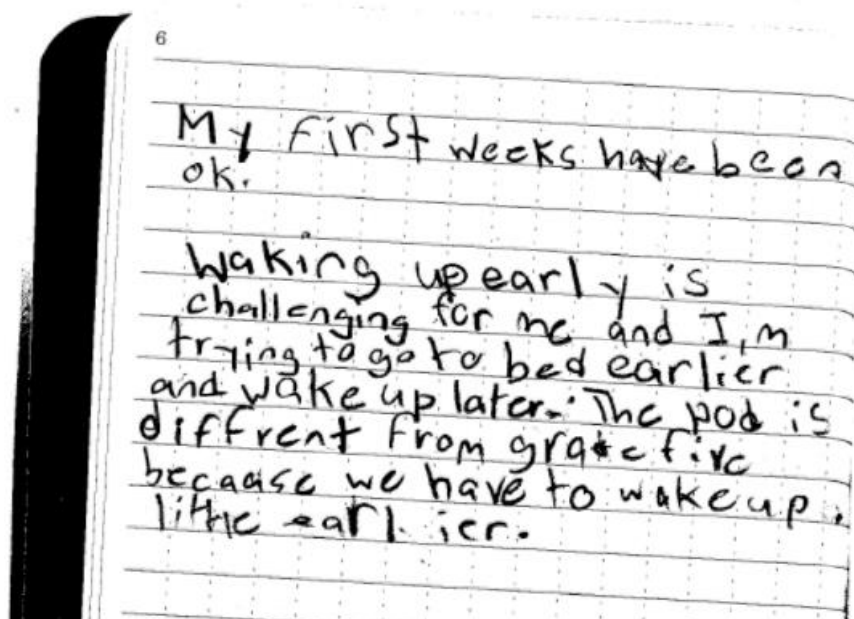 6
My first weeks have been
ok.
Waking up early is
challenging for me and I,m
trying to go to bed earlier
and wake up later. The pod is
diffrent from grade five
because we have to wake up.
little earlier.